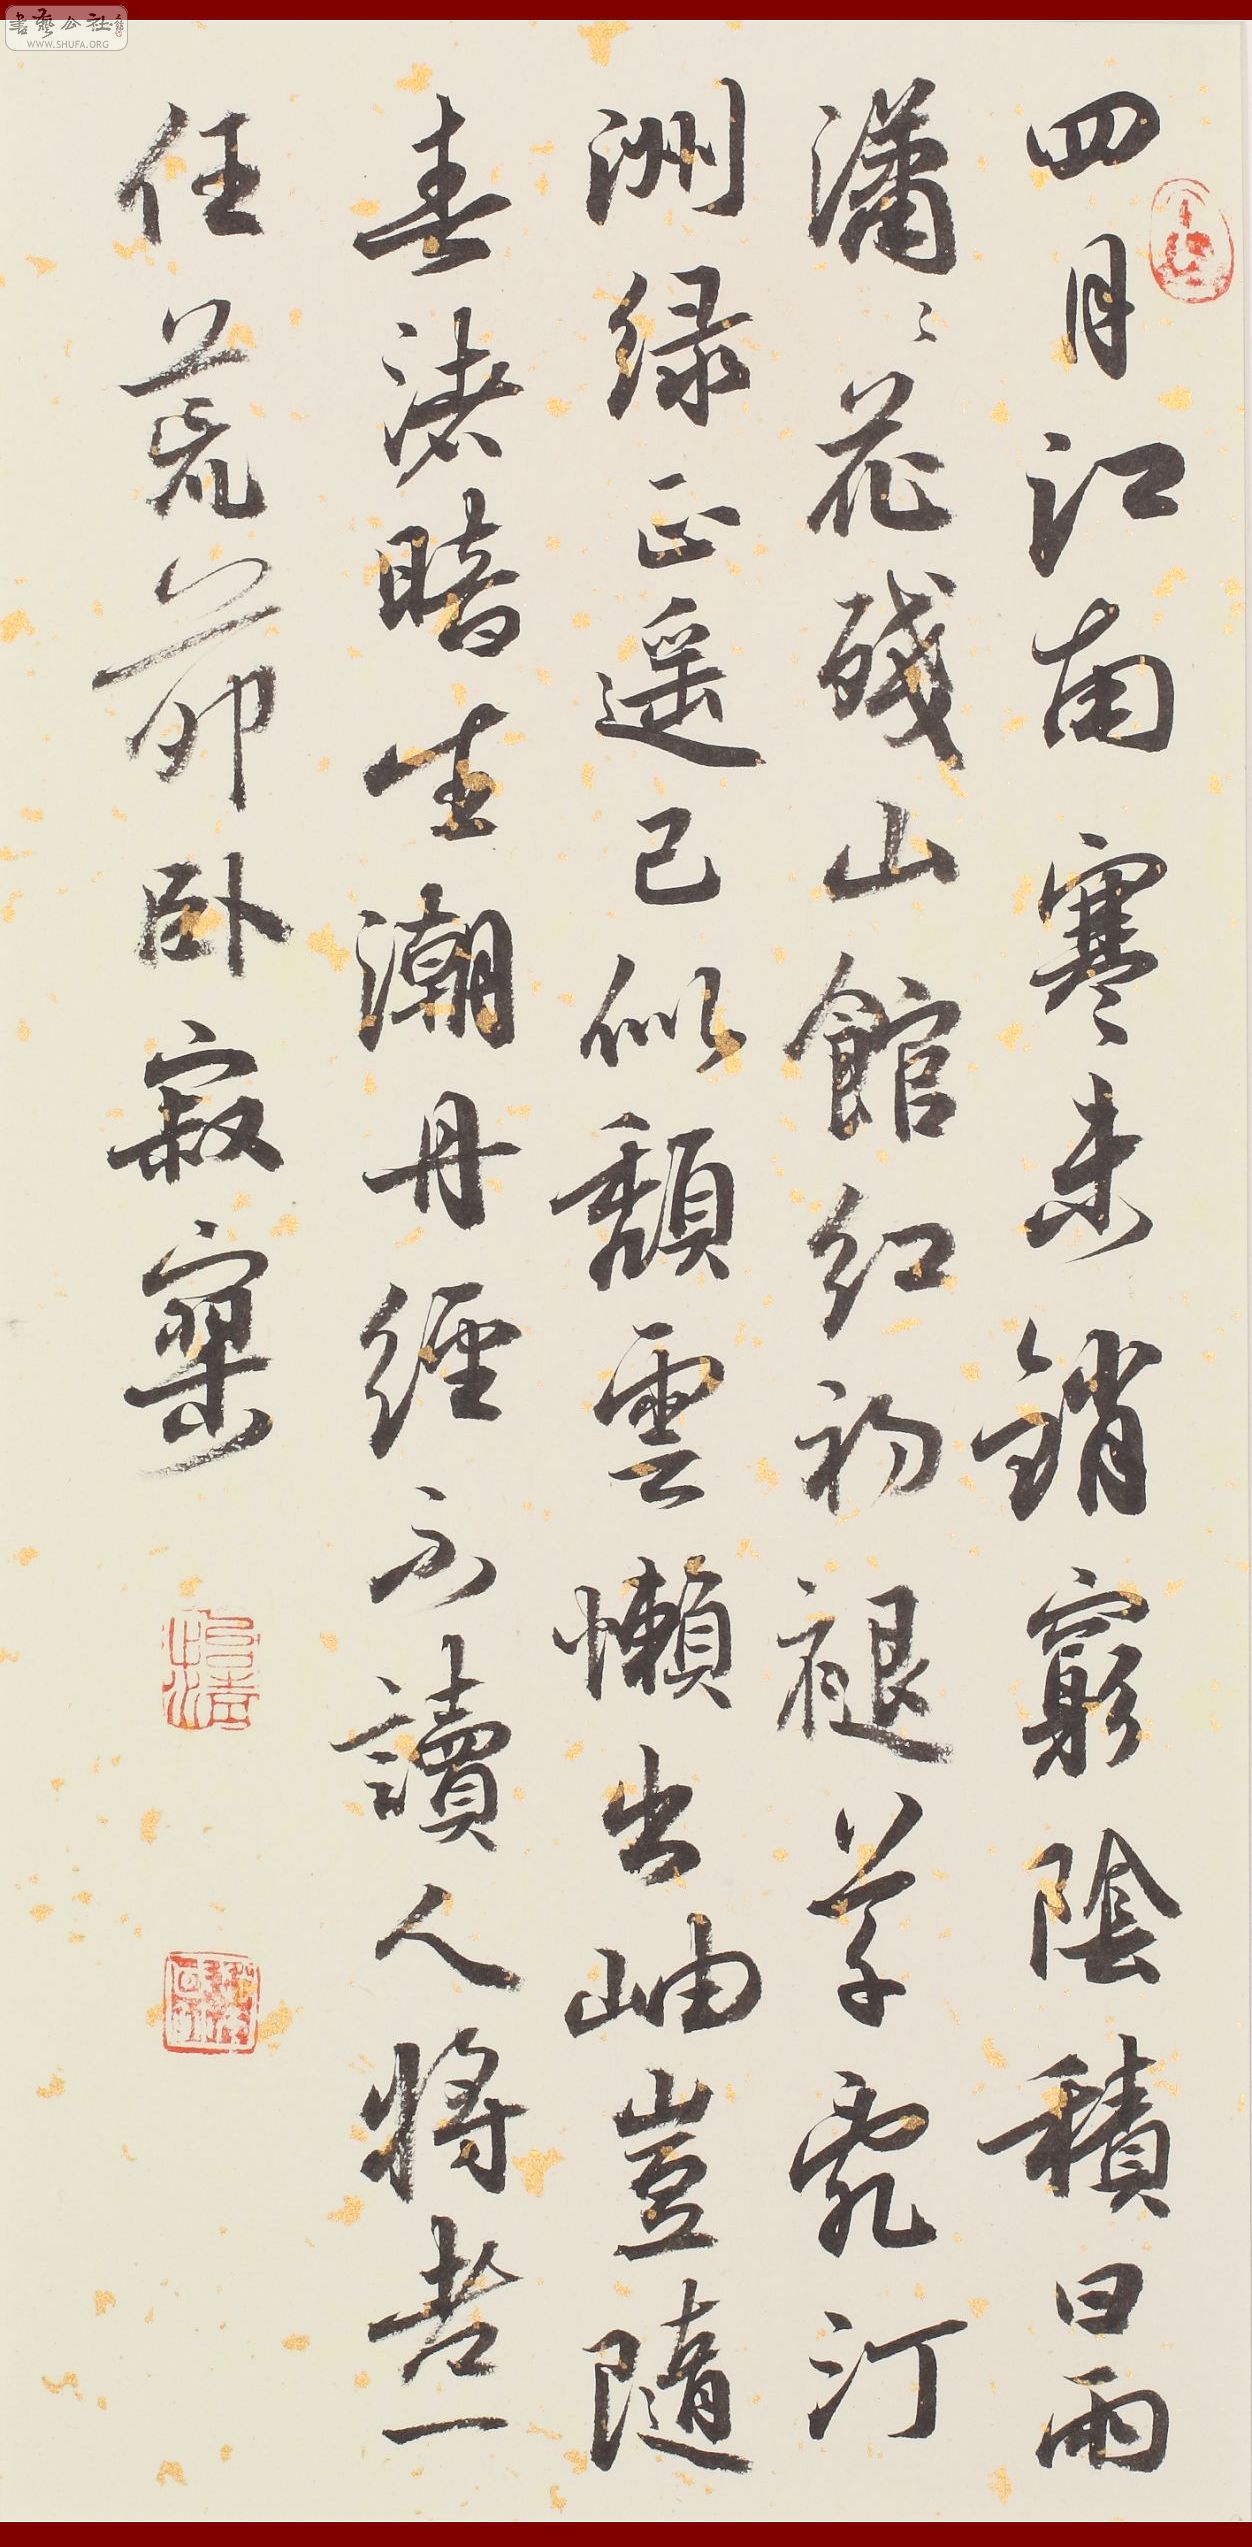 書藝公社
WWW.SHUFA.ORG
四月江南寒未銷窮陰積日雨
瀟〻花殘山館紅初褪草亂汀
洲绿正遥已似頹雲懶出岫豈隨
春渚暗生潮丹經不讀人將老一
任荒茆卧寂寥